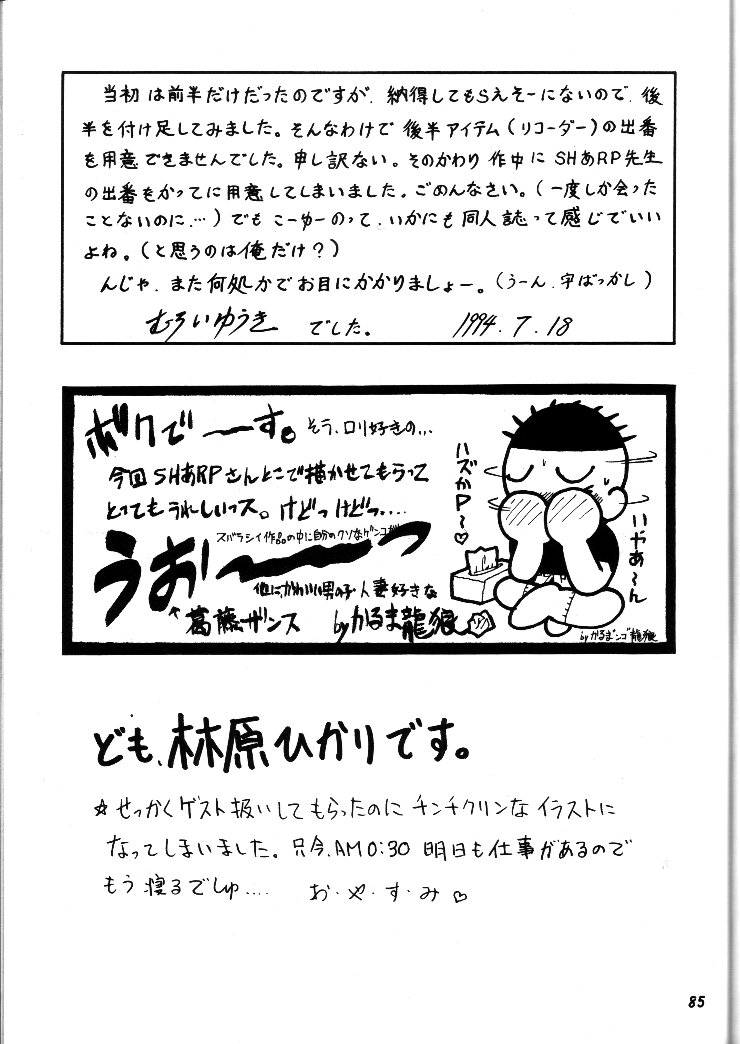 当初は前半だけだったのですが、納得してもらえそーにないので、後
半を付け足してみました。そんなわけで後半アイテム(リコーダー)の出番
を用意できませんでした。申し訳ない。そのかわり作中にSHあRP先生
の出番をかってに用意してしまいました。ごめんなさい。(一度しか会った
ことないのに…)でもこーゆーのって、いかにも同人誌って感じでいい
よね。(と思うのは俺だけ?)
んじゃ、また何処かでお目にかかりましょー。(うーん、字ばっかし)
むろいゆうき でした。 1994.7.18
ボクで〜〜す。そう、ロリ好きの…
今回SHあRPさんとこで描かせてもらって
とってもうれしいっス。けどっけどっ….
スバラシイ作品の中に自分のクソなゲンコ
うお〜〜〜っ
他に、かわいい男の子・人妻好きな
↖葛藤ザンス byかるま龍狼
ハズかP〜♡
いやあ〜ん
byかるまンゴ龍狼
ども、林原ひかりです。
☆せっかくゲスト扱いしてもらったのにチンチクリンなイラストに
なってしまいました。只今、AM0:30 明日も仕事があるので
もう寝るでしゅ…. お・や・す・み♡
85